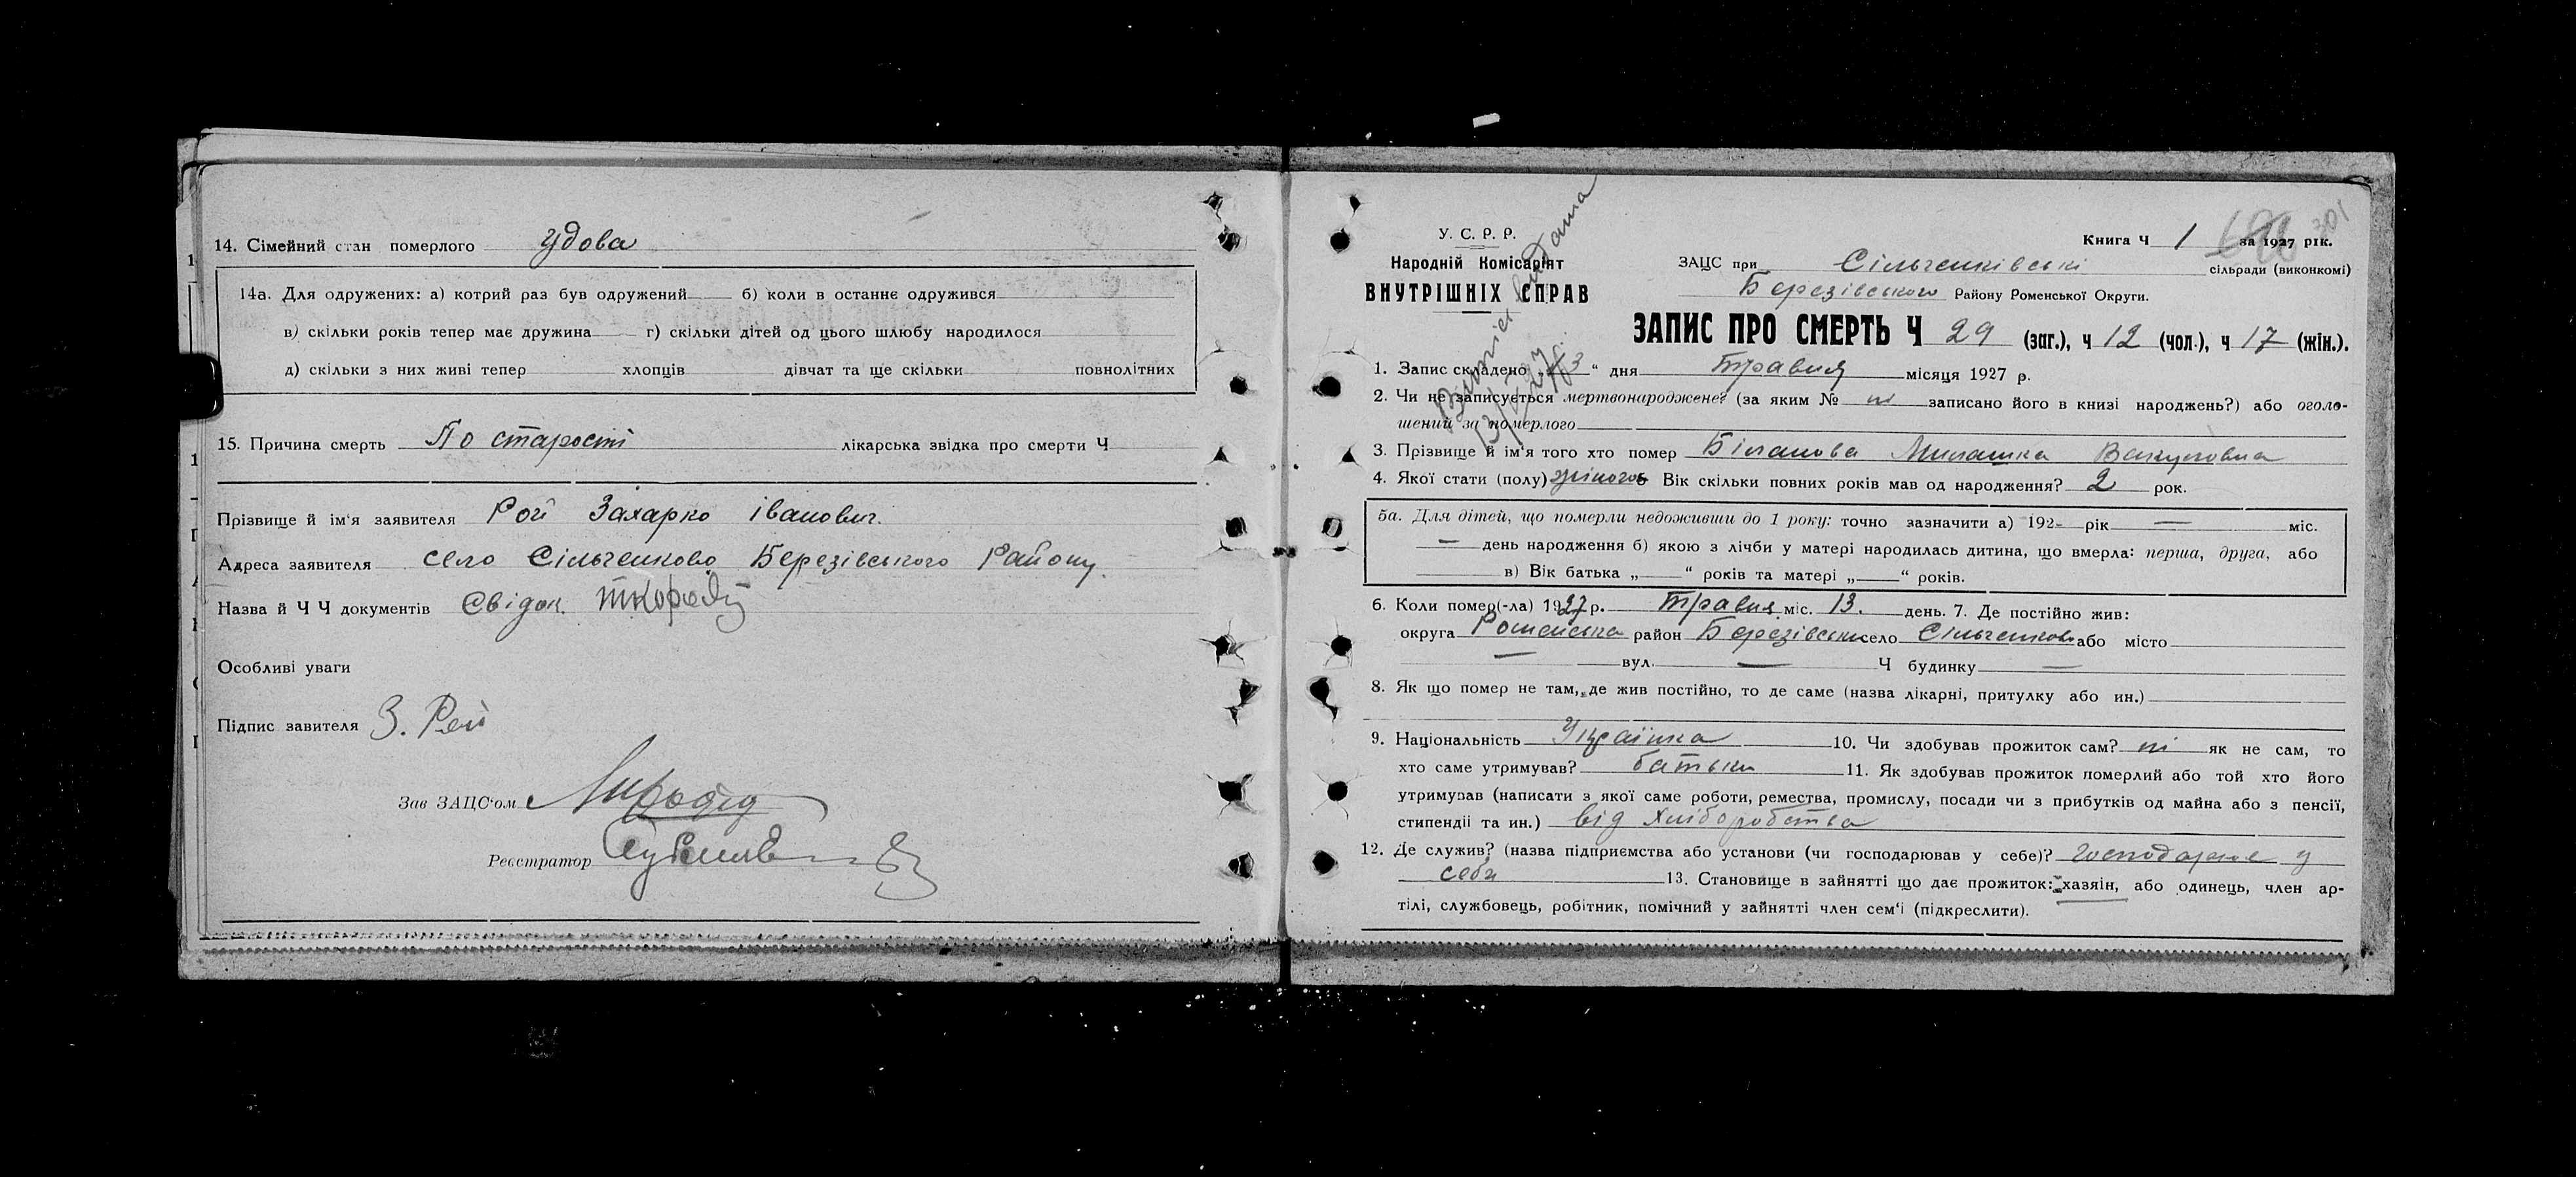 14. Сімейний стан померлого удова
14а. Для одружених: а) котрий раз був одружений б) коли в останнє одружився
в) скільки років тепер має дружина г) скільки дітей од цього шлюбу народилося
д) скільки з них живі тепер хлопців дівчат та ще скільки повнолітних
15. Причина смерть По старості лікарська звідка про смерти Ч
Прізвище й ім'я заявителя Рой Захарко Іванович.
Адреса заявителя село Сільченково Березівського Району.
Назва й Ч Ч документів Свідок.
Особливі уваги
Підпис завителя З. Рой
Зав ЗАЦС'ом
Реєстратор
У. С. Р. Р.
Народній Комісаріят
ВНУТРІШНІХ СПРАВ
Книга Ч 1 за 1927 рік.
301
ЗАЦС при Сільченківські сільради (виконкомі)
Березівського Району Роменської Округи.
ЗАПИС ПРО СМЕРТЬ Ч 29 (заг.), ч 12 (чол.), ч 17 (жін.).
1. Запис складено „13“ дня Травня місяця 1927 р.
2. Чи не записується мертвонароджене? (за яким № ні записано його в книзі народжень?) або оголо-
шений за померлого
3. Прізвище й ім'я того хто помер Біланова Милашка Вакуловна
4. Якої стати (полу) жіночоє Вік скільки повних років мав од народження? 2 рок.
5а. Для дітей, що померли недоживши до 1 року: точно зазначити а) 192- рік — міс.
— день народження б) якою з лічби у матері народилась дитина, що вмерла: перша, друга, або
в) Вік батька „ “ років та матері „ “ років.
6. Коли помер(-ла) 1927 р. Травня міс. 13. день. 7. Де постійно жив:
округа Роменська район Березівськи село Сільченково або місто
— вул. — Ч будинку —
8. Як що помер не там, де жив постійно, то де саме (назва лікарні, притулку або ин.)
9. Національність Українка 10. Чи здобував прожиток сам? ні як не сам, то
хто саме утримував? батьки 11. Як здобував прожиток померлий або той хто його
утримував (написати з якої саме роботи, ремества, промислу, посади чи з прибутків од майна або з пенсії,
стипендії та ин.) від хліборобства
12. Де служив? (назва підприємства або установи (чи господарював у себе)? господарює у
себе 13. Становище в зайнятті що дає прожиток: хазяін, або одинець, член ар-
тілі, службовець, робітник, помічний у зайнятті член сем'і (підкреслити).